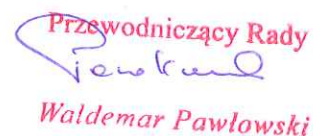 Przewodniczący Rady
Waldemar Pawłowski